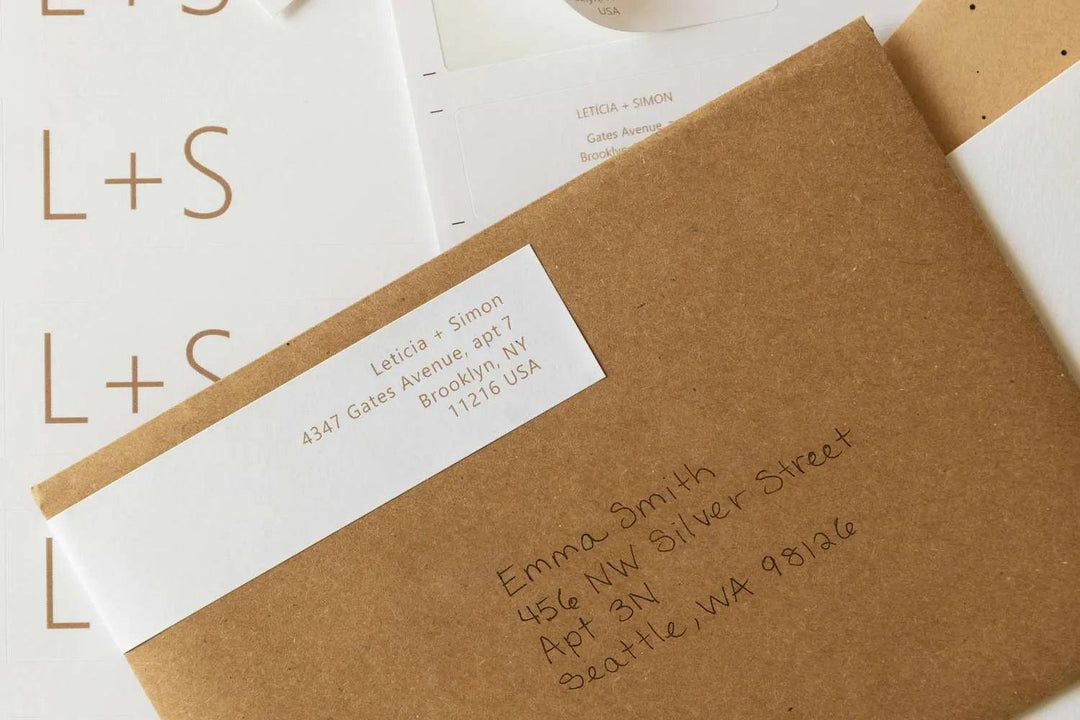 L + S
USA
L + S
LETÍCIA + SIMON
Gates Avenue,
Brooklyn
L + S
L
Leticia + Simon
4347 Gates Avenue, apt 7
Brooklyn, NY
11216 USA
Emma Smith
456 NW Silver Street
Apt 3N
Seattle, WA 98126